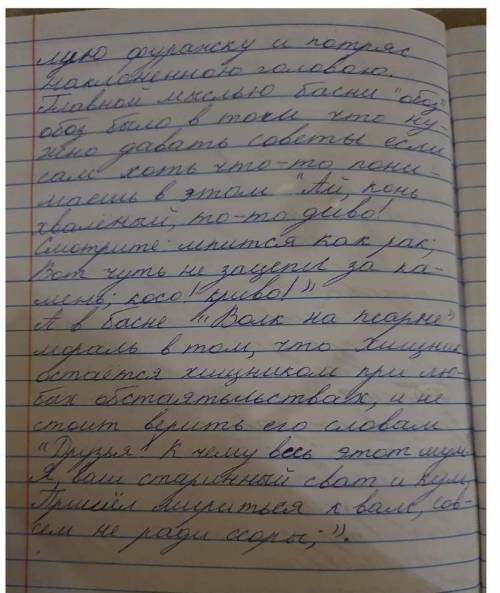 мую фуражку и потряс
наклоненною головою.
Главной мыслью басни "обоз"
обоз было в том что ну-
жно давать советы если
сам хоть что-то пони-
маешь в этом "Ай, конь
хвалёный, то-то диво!
Смотрите: лепится как рак;
Вот чуть не зацепил за ка-
мень; косо! криво!"
А в басне "Волк на псарне"
мораль в том, что Хищник
остается хищником при лю-
бах обстаятьльствах, и не
стоит верить его словам
"Друзья! К чему весь этот шум
Я, ваш старинный сват и кум,
Пришёл мириться к вам, сов-
сем не ради ссоры;".